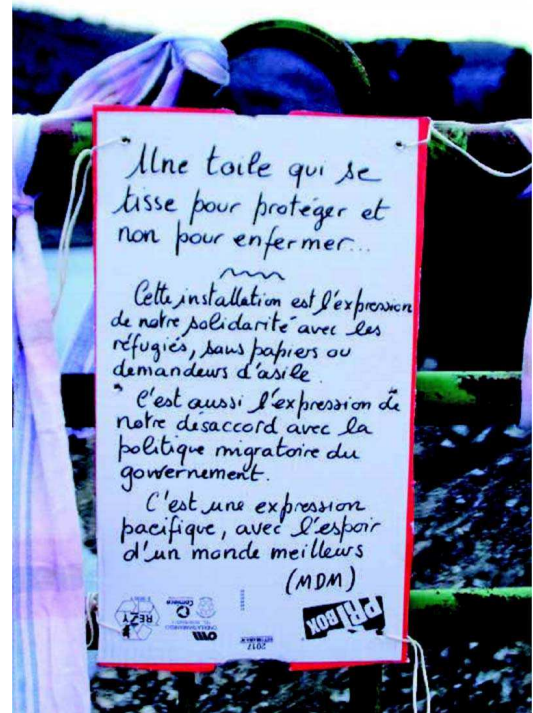 Une toile qui se
tisse pour protéger et
non pour enfermer...
Cette installation est l'expression
de notre solidarité avec les
réfugiés, sans papiers ou
demandeurs d'asile
C'est aussi l'expression de
notre désaccord avec la
politique migratoire du
gouvernement.
C'est une expression
pacifique, avec l'espoir
d'un monde meilleurs
(MDM)
PRIBOX
2017
Comieco
REZY